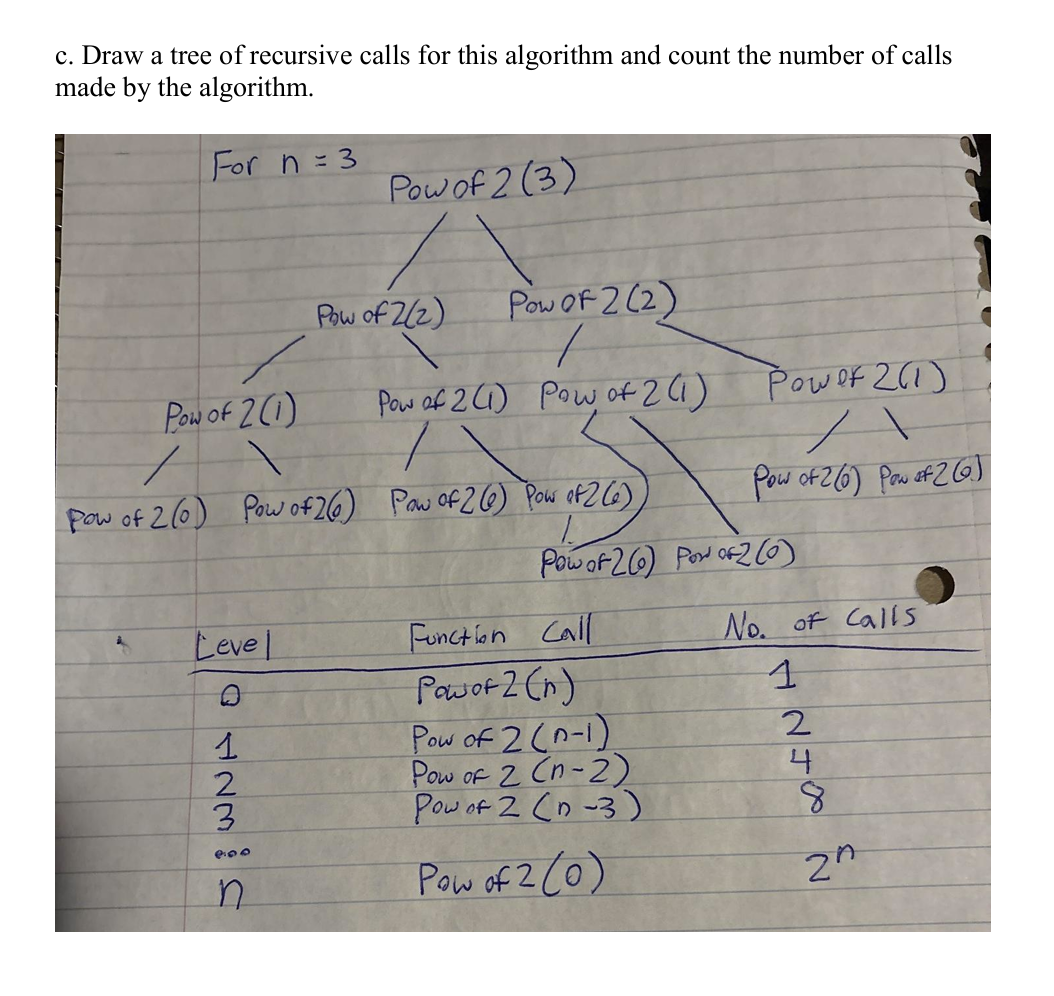 c. Draw a tree of recursive calls for this algorithm and count the number of calls
made by the algorithm.
For n = 3
Pow of 2 (3)
Pow of 2(2) Pow of 2 (2)
Pow of 2(1) Pow of 2 (1) Pow of 2 (1) Pow of 2(1)
Pow of 2(0) Pow of 2(0) Pow of 2(0) Pow of 2(0) Pow of 2(0) Pow of 2(0)
Pow of 2(0) Pow of 2(0)
Level Function Call No. of Calls
0 Pow of 2 (n) 1
1 Pow of 2 (n-1) 2
2 Pow of 2 (n-2) 4
3 Pow of 2 (n-3) 8
...
n Pow of 2 (0) 2ⁿ